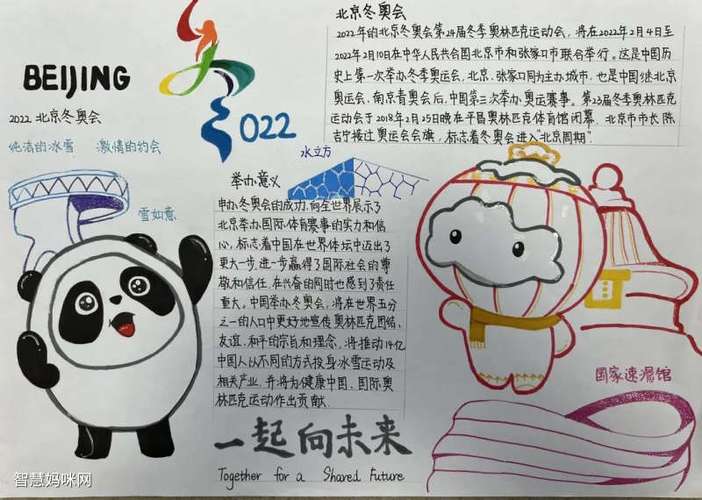 BEIJING
2022 北京冬奥会
纯洁的冰雪 激情的约会
2022
北京冬奥会
2022年的北京冬奥会第24届冬季奥林匹克运动会，将在2022年2月4日至
2022年2月10日在中华人民共合国北京市和张家口市联合举行。这是中国历
史上第一次举办冬季奥运会，北京、张家口同为主办城市，也是中国继北京
奥运会，南京青奥会后，中国第三次举办奥运赛事。第23届冬季奥林匹克
运动会于2018年2月25日晚在平昌奥林匹克体育馆闭幕，北京市市长陈
吉宁接过奥运会会旗，标志着冬奥会进入“北京周期”.
水立方
雪如意
举办意义
申办冬奥会的成功，向全世界展示了
北京举办国际体育赛事的实力和信
心，标志着中国在世界体坛中迈出了
更大一步，进一步赢得了国际社会的尊
敬和信任，在兴奋的同时也感到了责任
重大。中国举办冬奥会，将在世界五分
之一的人口中更好地宣传奥林匹克团结、
友谊、和平的宗旨和理念，将推动14亿
中国人以不同的方式投身冰雪运动及
相关产业，并将为健康中国、国际奥
林匹克运动作出贡献.
国家速滑馆
一起向未来
Together for a Shared Future
智慧妈咪网